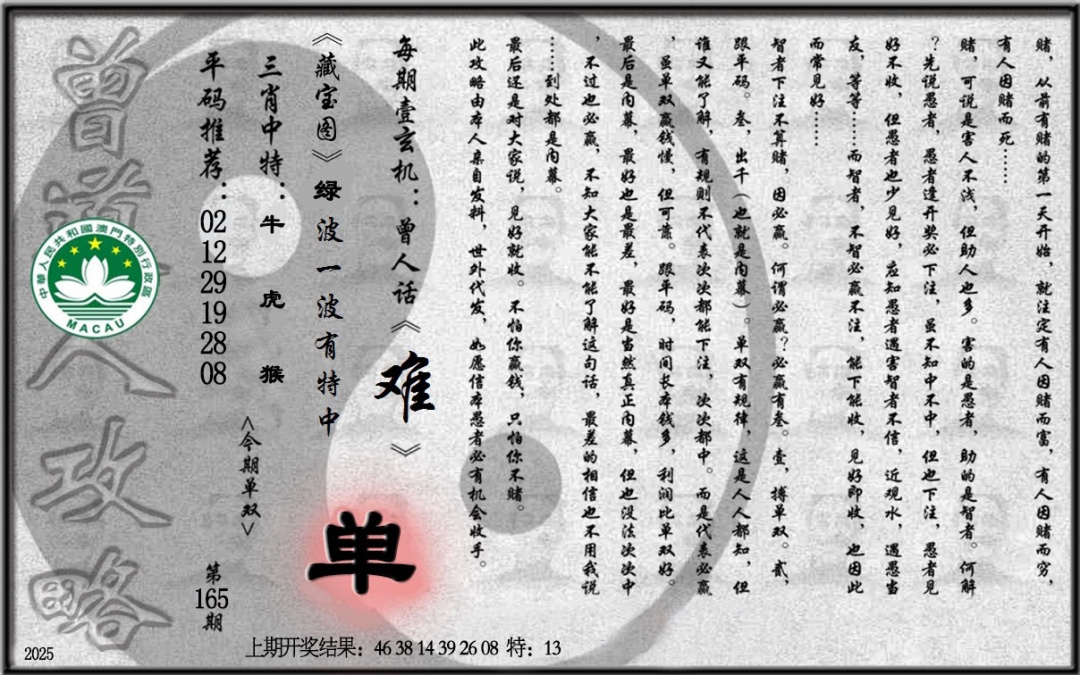 赌，从前有赌的第一天开始，就注定有人因赌而富，有人因赌而穷，
有人因赌而死……
赌，可说是害人不浅，但助人也多。害的是愚者，助的是智者。何解
？先说愚者，愚者逢开奖必下注，虽不知中不中，但也下注，愚者见
好不收，但愚者也少见好，应知愚者遇害智者不信，近观水，遇愚当
友，等等……而智者，不智必赢不注，能下能收，见好即收，也因此
而常见好……
智者下注不算赌，因必赢。何谓必赢？必赢有叁。壹，搏单双。贰，
跟平码。叁，出千（也就是内幕）。单双有规律，这是人人都知，但
谁又能了解，有规则不代表次次都能下注，次次都中。而是代表必赢
，虽单双赢钱慢，但可靠。跟平码，时间长本钱多，利润比单双好。
最后是内幕，最好也是最差，最好是当然真正内幕，但也没法次次中
，不过也必赢，不知大家能不能了解这句话，最差的相信也不用我说
……到处都是内幕。
最后还是对大家说，见好就收。不怕你赢钱，只怕你不赌。
此攻略由本人亲自发料，世外代发，如愿信本愚者必有机会收手。
每期壹玄机：曾人话《难》
《藏宝图》绿波一波有特中
三肖中特：牛 虎 猴
平码推荐：02 12 29 19 28 08
<今期单双>
单
第165期
曾道人攻略
中華人民共和國澳門特別行政區
MACAU
2025
上期开奖结果：46 38 14 39 26 08 特：13